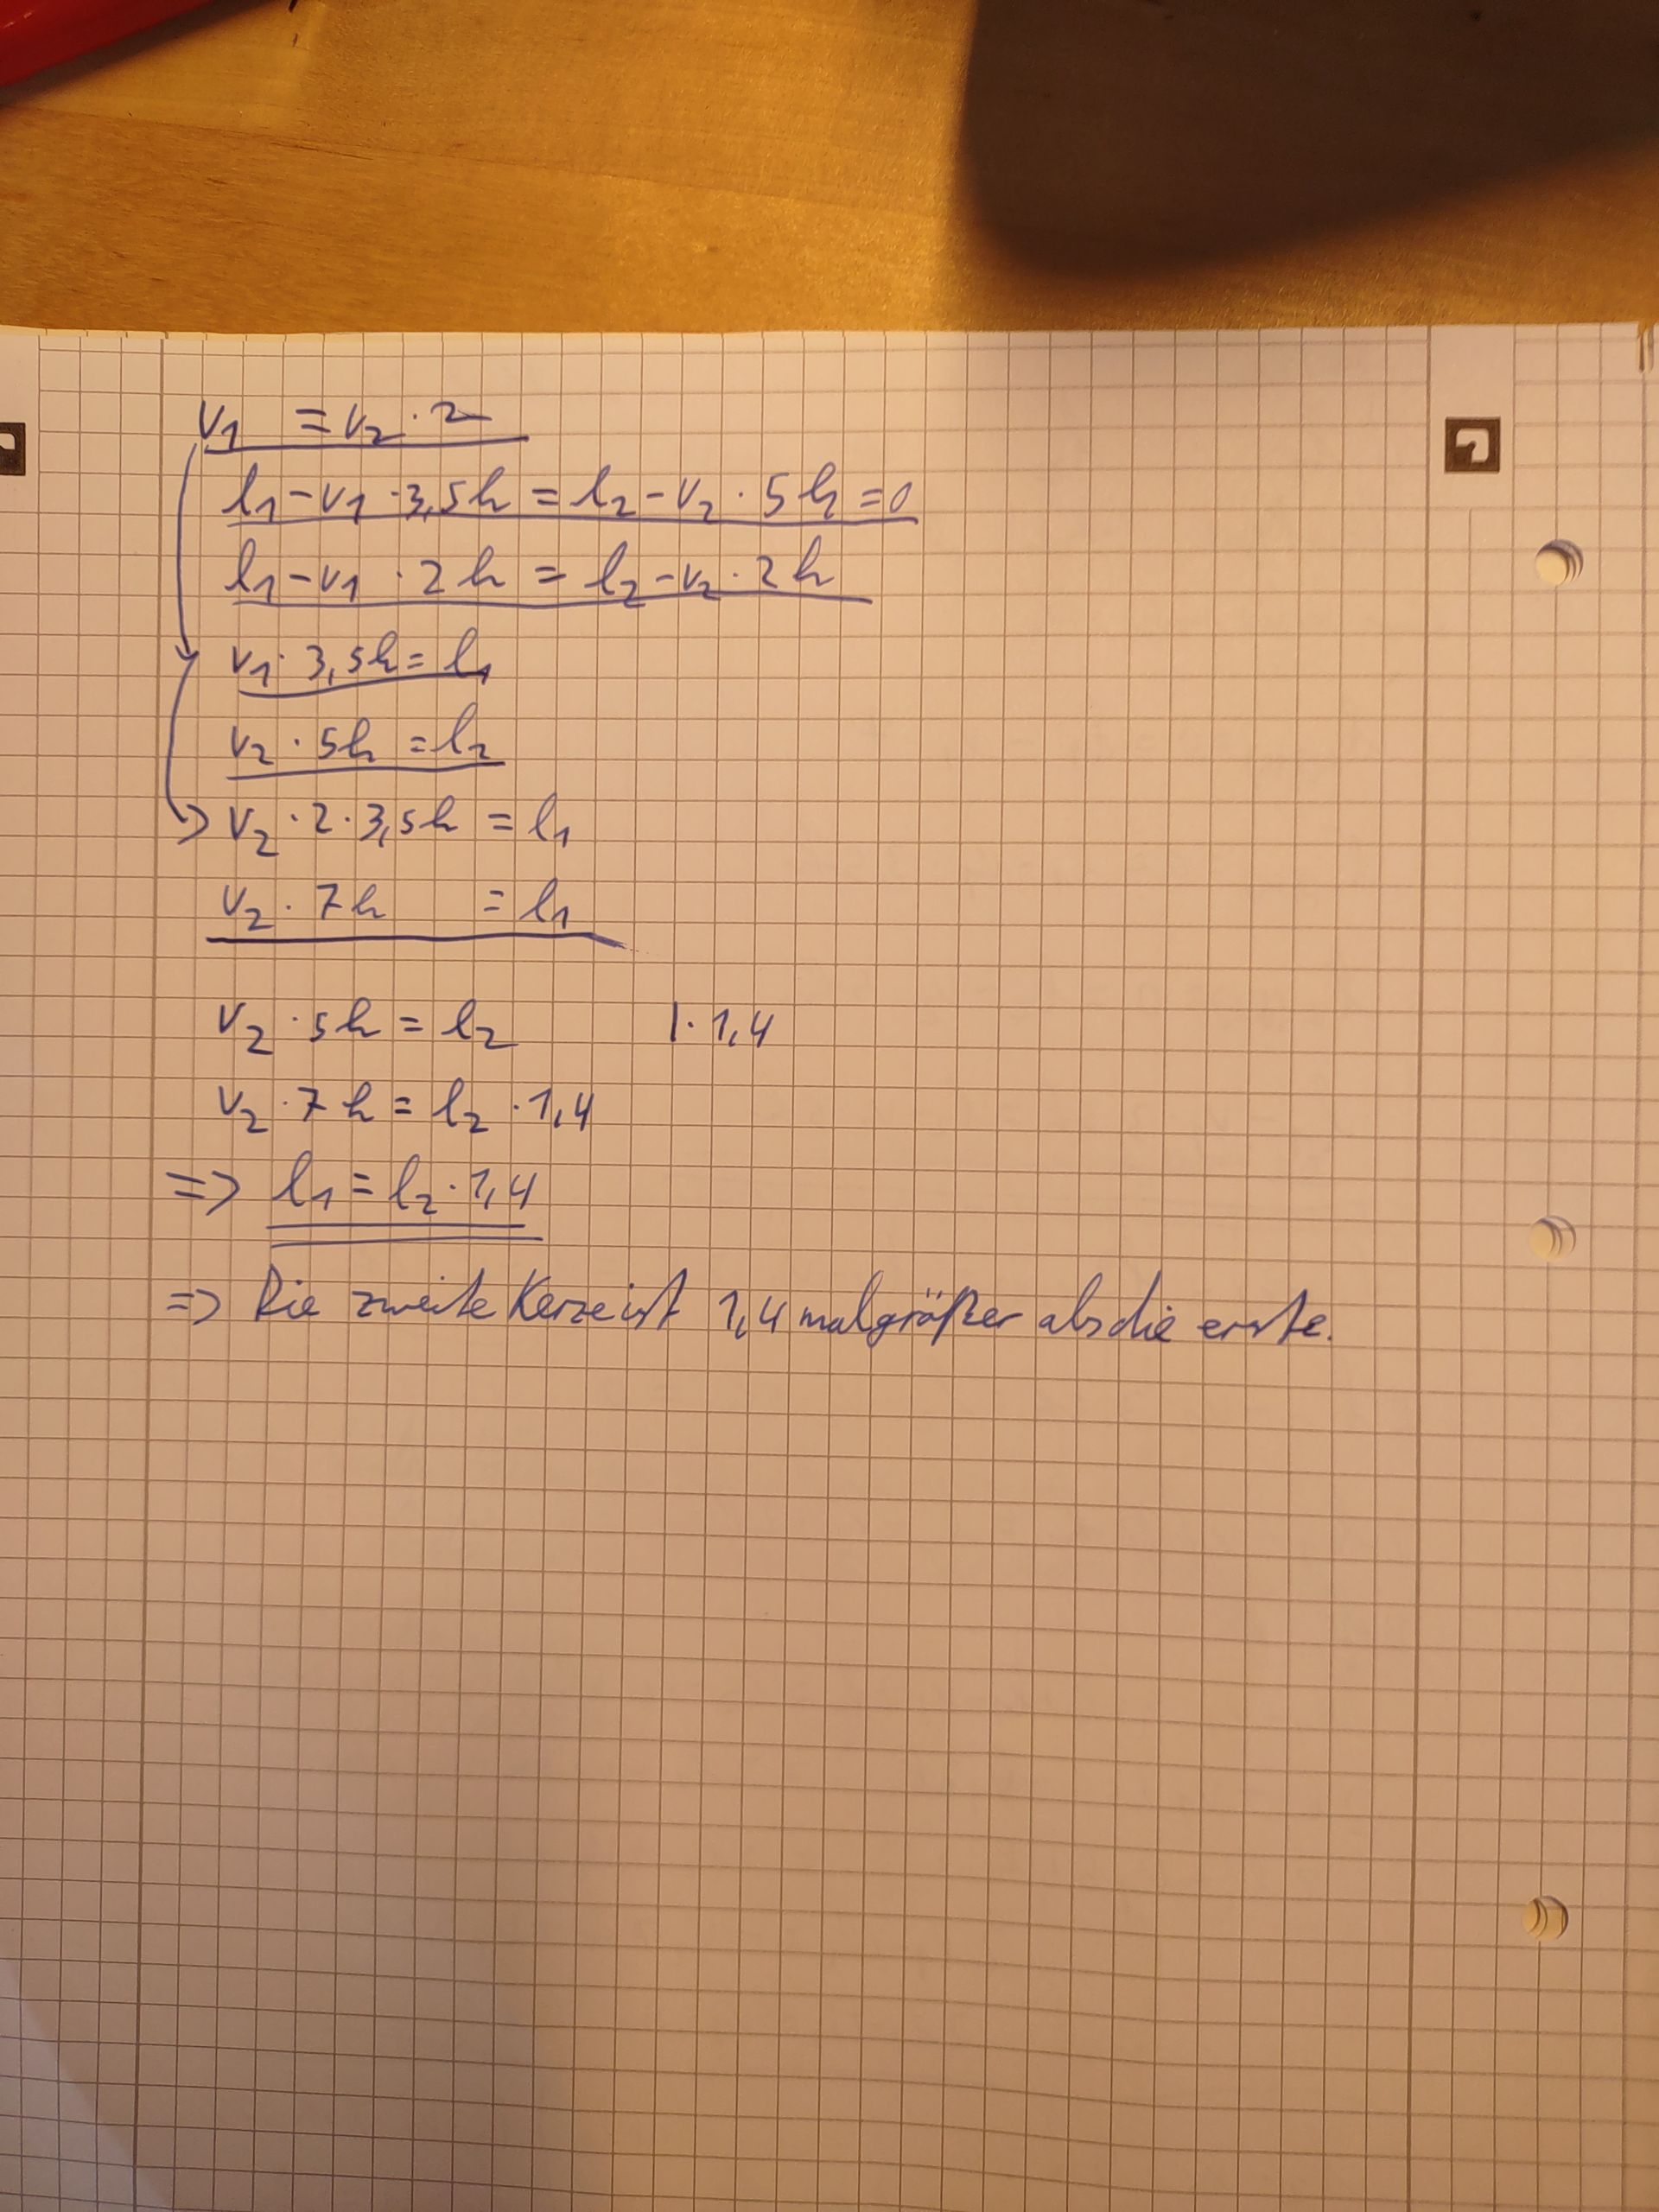 v₁ = v₂ · 2
l₁ - v₁ · 3,5h = l₂ - v₂ · 5h = 0
l₁ - v₁ · 2h = l₂ - v₂ · 2h
v₁ · 3,5h = l₁
v₂ · 5h = l₂
→ v₂ · 2 · 3,5h = l₁
v₂ · 7h = l₁
v₂ · 5h = l₂ | · 1,4
v₂ · 7h = l₂ · 1,4
=> l₁ = l₂ · 1,4
=> Die zweite Kerze ist 1,4 mal größer als die erste.